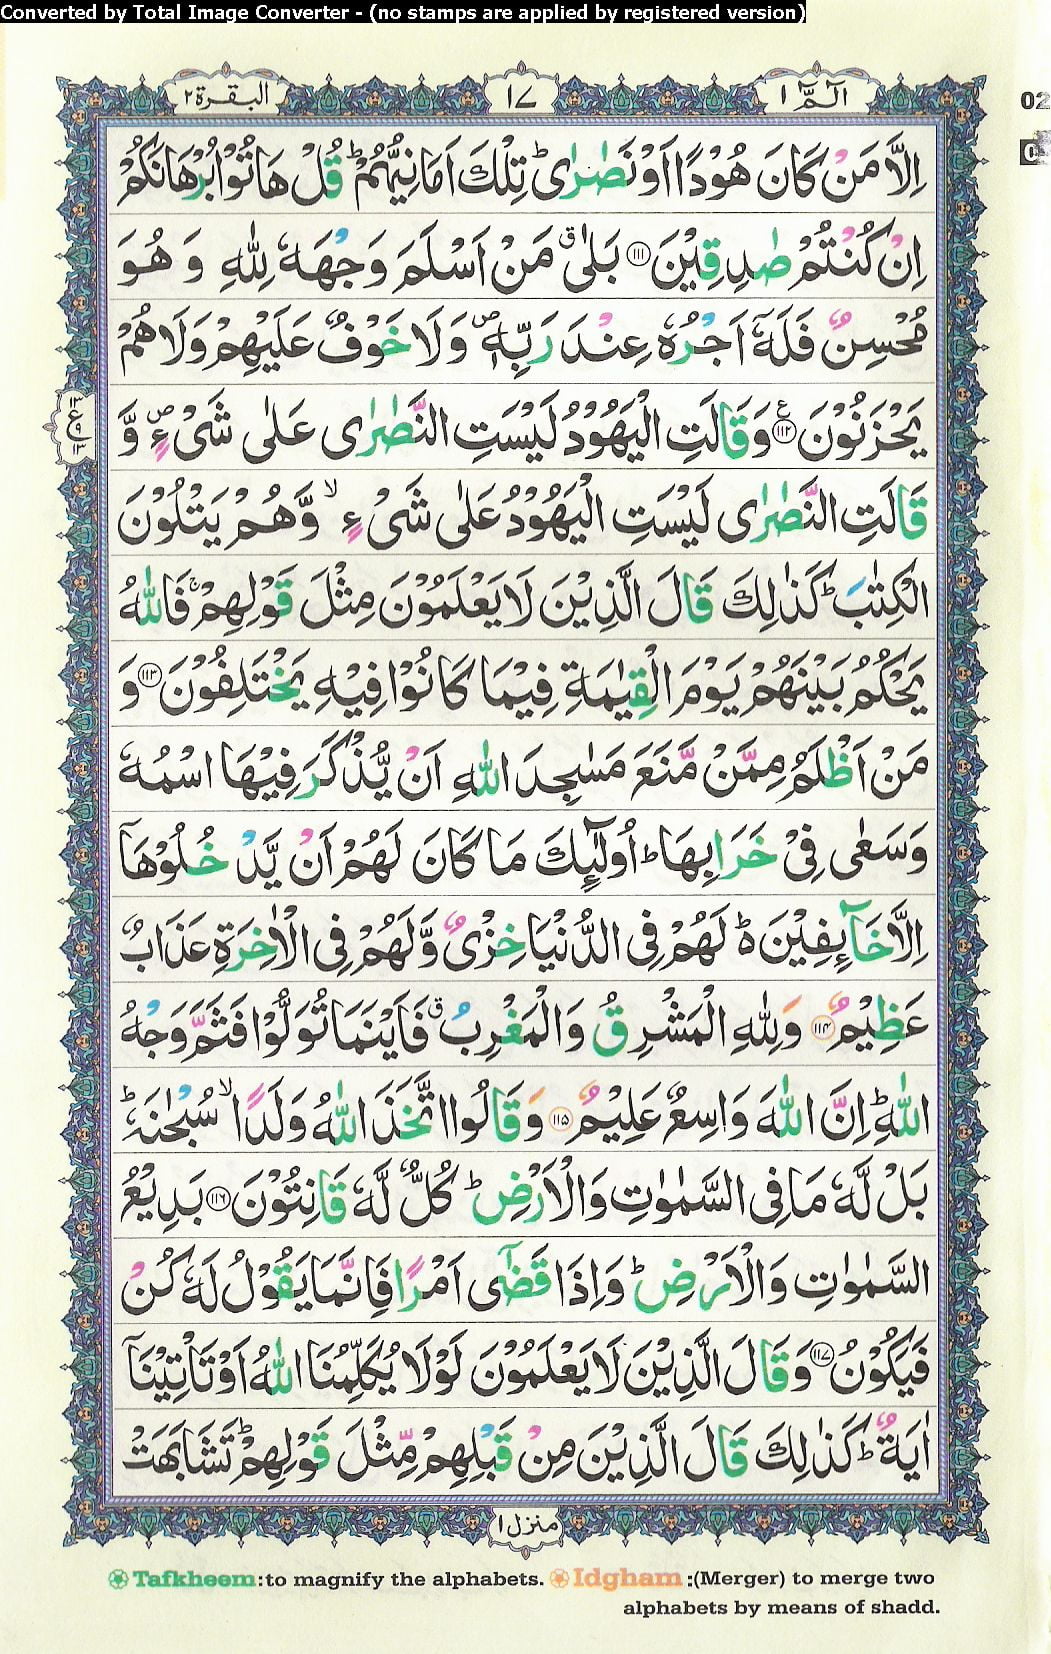 Converted by Total Image Converter - (no stamps are applied by registered version)
الٓمّٓ ١
١٧
البقرة ٢
02
اِلَّا مَنْ كَانَ هُوْدًا اَوْ نَصٰرٰى ؕ تِلْكَ اَمَانِيُّهُمْ ؕ قُلْ هَاتُوْا بُرْهَانَكُمْ
اِنْ كُنْتُمْ صٰدِقِيْنَ ﴿۱۱۱﴾ بَلٰى ق مَنْ اَسْلَمَ وَجْهَهٗ لِلّٰهِ وَ هُوَ
مُحْسِنٌ فَلَهٗۤ اَجْرُهٗ عِنْدَ رَبِّهٖ ص وَلَا خَوْفٌ عَلَيْهِمْ وَلَا هُمْ
يَحْزَنُوْنَ ﴿۱۱۲﴾ وَقَالَتِ الْيَهُوْدُ لَيْسَتِ النَّصٰرٰى عَلٰى شَىْءٍ ص وَّ
١٣
ع
٩
١٣
قَالَتِ النَّصٰرٰى لَيْسَتِ الْيَهُوْدُ عَلٰى شَىْءٍ ۙ وَّهُمْ يَتْلُوْنَ
الْكِتٰبَ ؕ كَذٰلِكَ قَالَ الَّذِيْنَ لَا يَعْلَمُوْنَ مِثْلَ قَوْلِهِمْ ۚ فَاللّٰهُ
يَحْكُمُ بَيْنَهُمْ يَوْمَ الْقِيٰمَةِ فِيْمَا كَانُوْا فِيْهِ يَخْتَلِفُوْنَ ﴿۱۱۳﴾ وَ
مَنْ اَظْلَمُ مِمَّنْ مَّنَعَ مَسٰجِدَ اللّٰهِ اَنْ يُّذْكَرَ فِيْهَا اسْمُهٗ
وَسَعٰى فِىْ خَرَابِهَا ؕ اُولٰٓئِكَ مَا كَانَ لَهُمْ اَنْ يَّدْخُلُوْهَاۤ
اِلَّا خَآئِفِيْنَ ؕ لَهُمْ فِى الدُّنْيَا خِزْىٌ وَّلَهُمْ فِى الْاٰخِرَةِ عَذَابٌ
عَظِيْمٌ ﴿۱۱۴﴾ وَلِلّٰهِ الْمَشْرِقُ وَالْمَغْرِبُ ق فَاَيْنَمَا تُوَلُّوْا فَثَمَّ وَجْهُ
اللّٰهِ ؕ اِنَّ اللّٰهَ وَاسِعٌ عَلِيْمٌ ﴿۱۱۵﴾ وَقَالُوا اتَّخَذَ اللّٰهُ وَلَدًا ۙ سُبْحٰنَهٗ ؕ
بَلْ لَّهٗ مَا فِى السَّمٰوٰتِ وَالْاَرْضِ ؕ كُلٌّ لَّهٗ قَانِتُوْنَ ﴿۱۱۶﴾ بَدِيْعُ
السَّمٰوٰتِ وَالْاَرْضِ ؕ وَاِذَا قَضٰۤى اَمْرًا فَاِنَّمَا يَقُوْلُ لَهٗ كُنْ
فَيَكُوْنُ ﴿۱۱۷﴾ وَقَالَ الَّذِيْنَ لَا يَعْلَمُوْنَ لَوْلَا يُكَلِّمُنَا اللّٰهُ اَوْ تَاْتِيْنَاۤ
اٰيَةٌ ؕ كَذٰلِكَ قَالَ الَّذِيْنَ مِنْ قَبْلِهِمْ مِّثْلَ قَوْلِهِمْ ؕ تَشَابَهَتْ
منزل ١
Tafkheem:to magnify the alphabets. Idgham :(Merger) to merge two
alphabets by means of shadd.